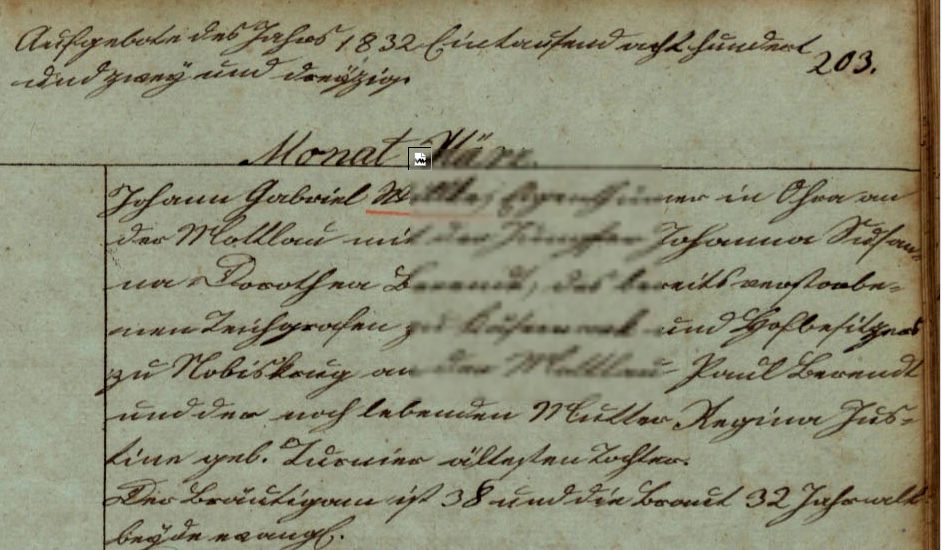 Aufgebote des Jahrs 1832 Eintausend acht hundert
und zwey und dreyzig.
203.
Monat März.
Johann Gabriel Eigenthümer in Ohra an
der Mottlau mit der Jungfer Johanna Susan
na Dorothea Berendt, des bereits verstorbe-
nen Teichgrafen zu und Hofbesitzers
zu Nobiskrug an der Mottlau Paul Berendt
und der noch lebenden Mutter Regina Jus-
tine geb. Turnier ältesten Tochter.
Der Bräutigam ist 38 und die Braut 32 Jahr alt
beyde evangl.